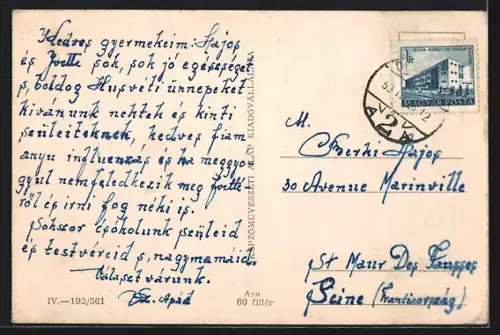 Kedves gyermekeim: Lajos
és Yvette sok, sok jó egészséget
s, boldog Husvéti ünnepeket
kivánunk nektek és kinti
szüleiteknek, kedves fiam
anyu influenzás és ha meggyo-
gyul nem feledkezik meg Yvett-
ről és irni fog néki is.
Sokszor csókolunk szüleid
és testvéreid s, nagymamáid.
Választ várunk.
Apád
IV.—192/561
Ára
60 fillér
KÉPZŐMŰVÉSZETI ALAP KIADÓVÁLLALATA
1 Ft
MAGYAR POSTA
2
M.
Berki Lajos
30 Avenue Marinville
St Maur Des Fausses
Seine (Franciaország)